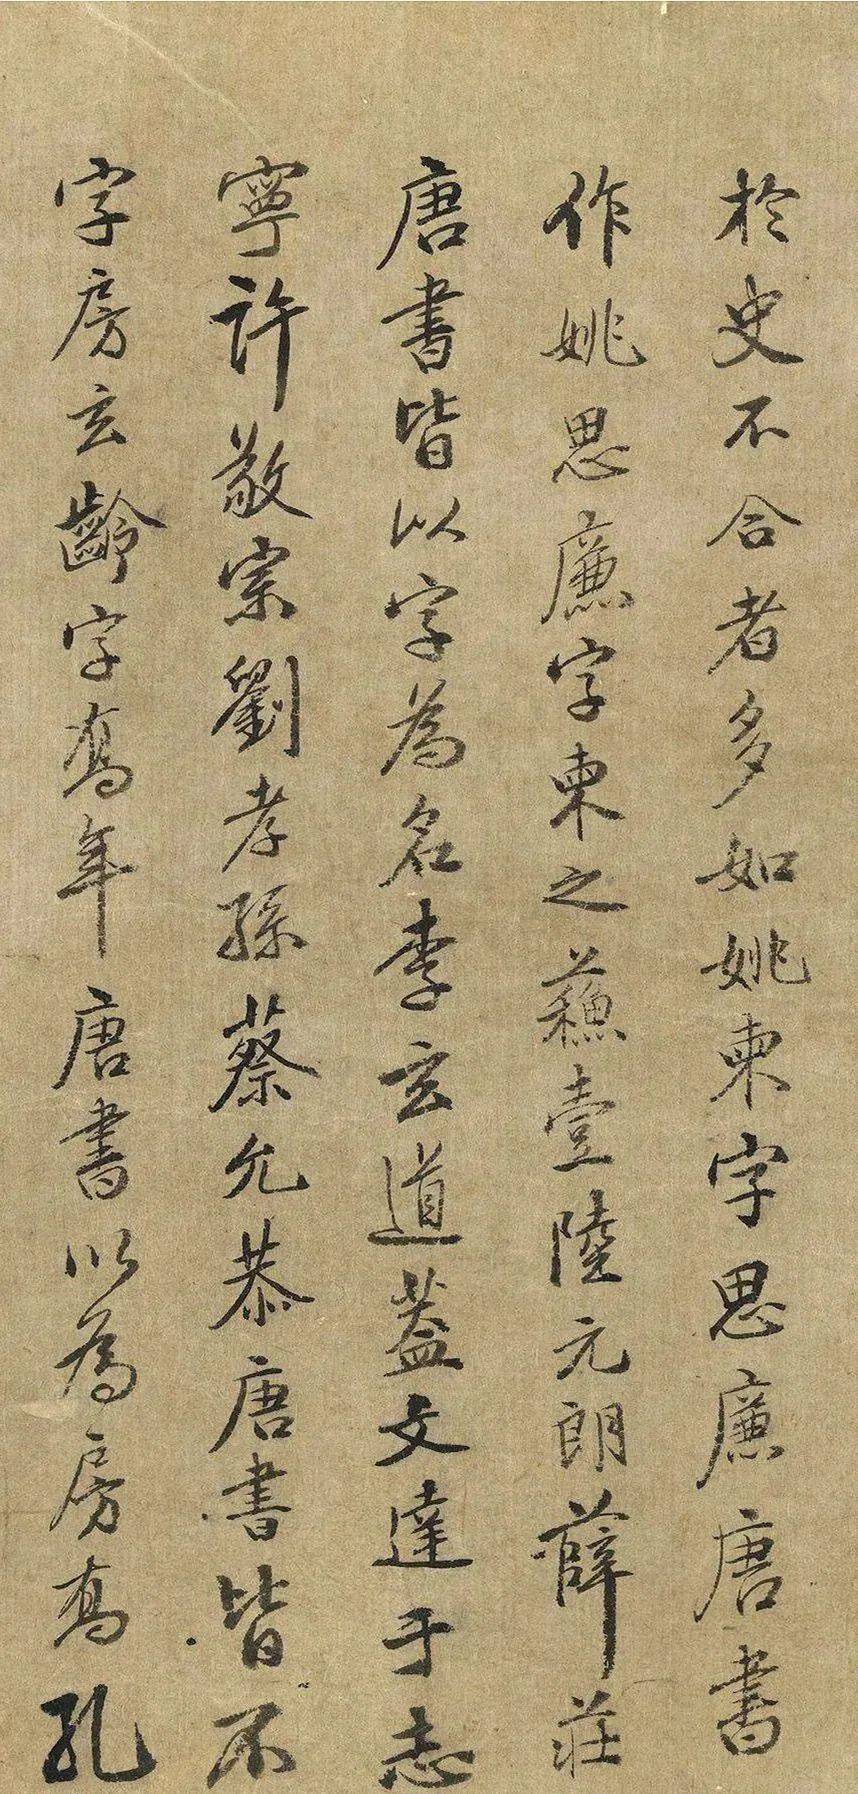 於史不合者多如姚柬字思廉唐書
作姚思廉字柬之蘓壹陸元朗薛莊
唐書皆以字為名李玄道葢文達于志
寧許敬宗劉孝孫蔡允恭唐書皆不
字房玄齡字喬年唐書以為房喬孔